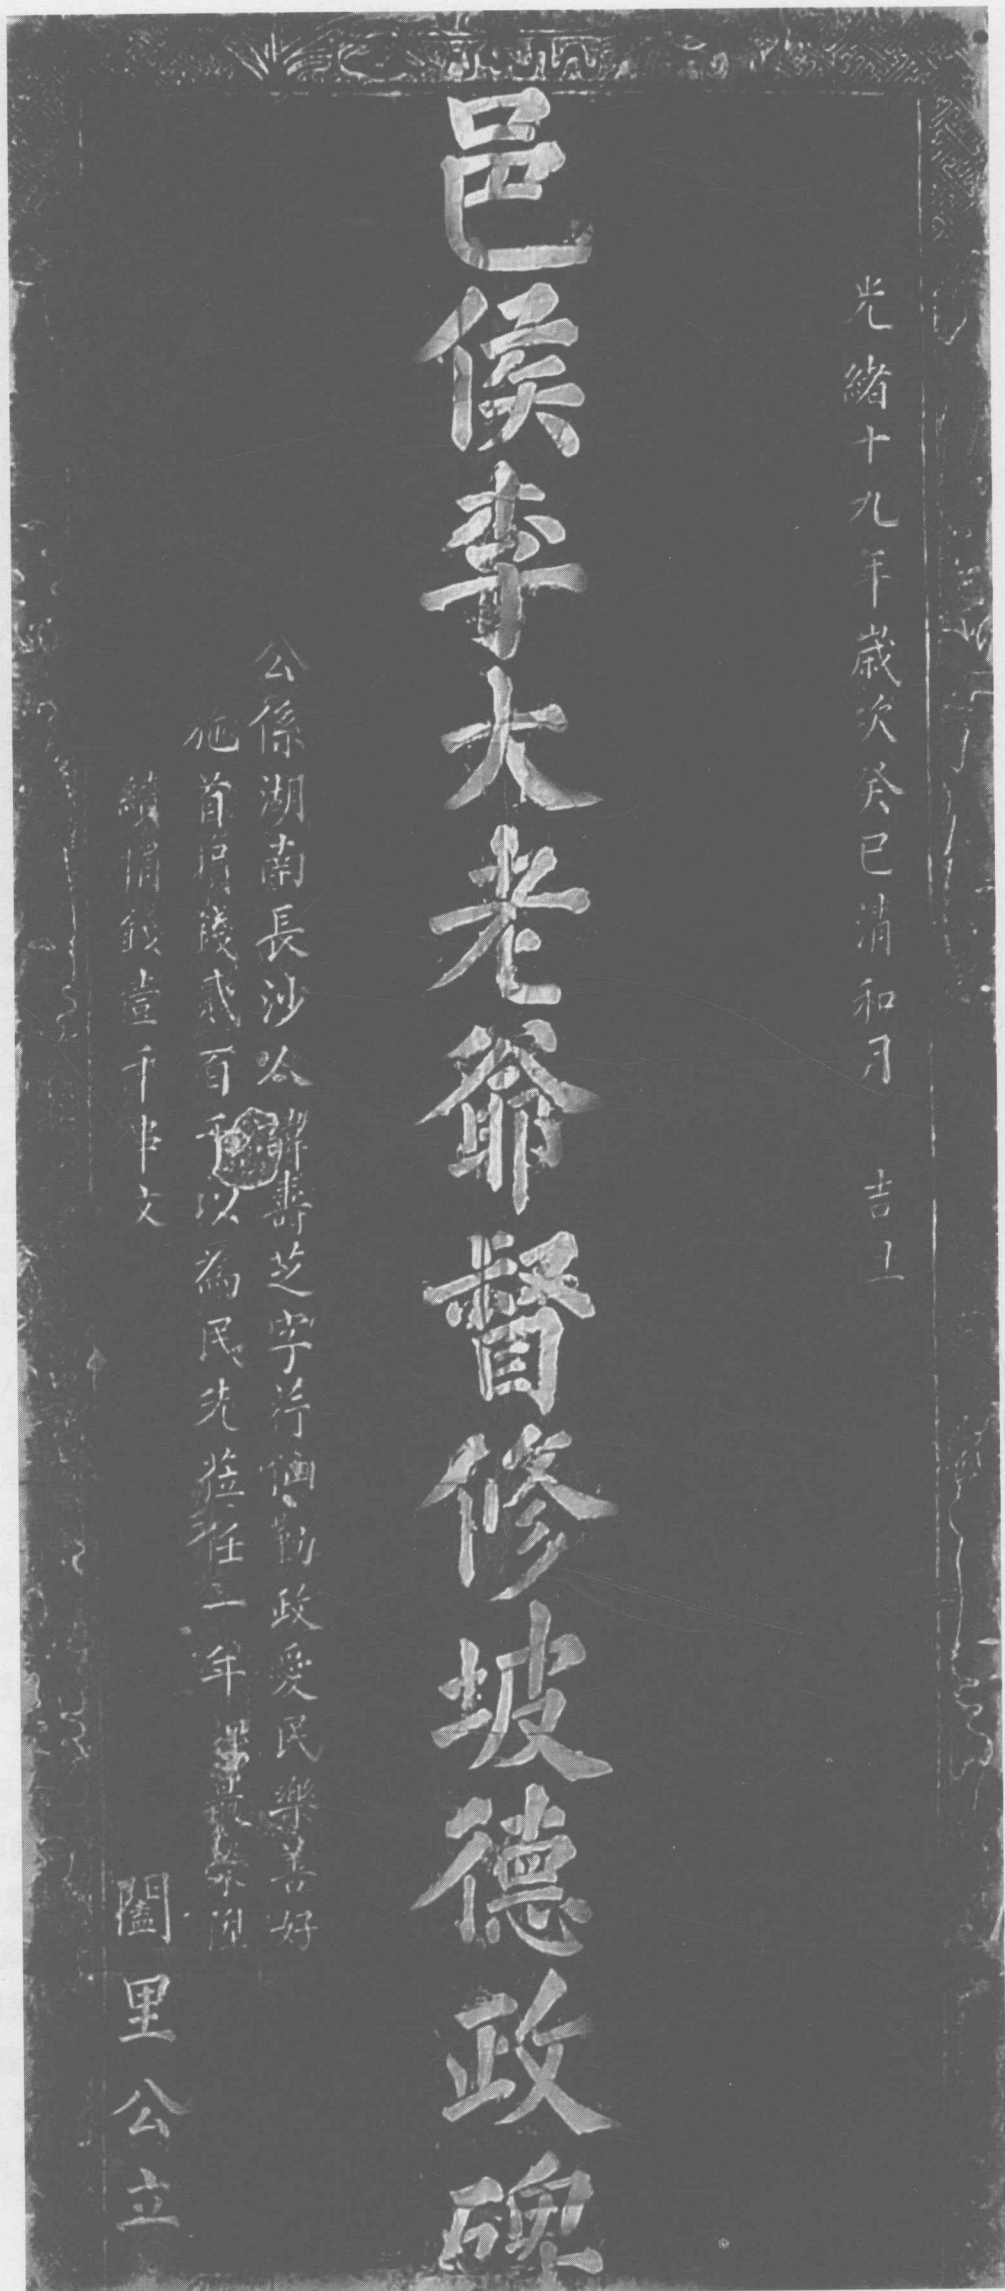 光緒十九年歲次癸巳清和月 吉立
邑侯李大老爺督修坡德政碑
公係湖南長沙人 壽芝字 勤政愛民樂善好
施首捐錢貳百千以為民先蒞任二年
續捐錢壹千串文
闔里公立